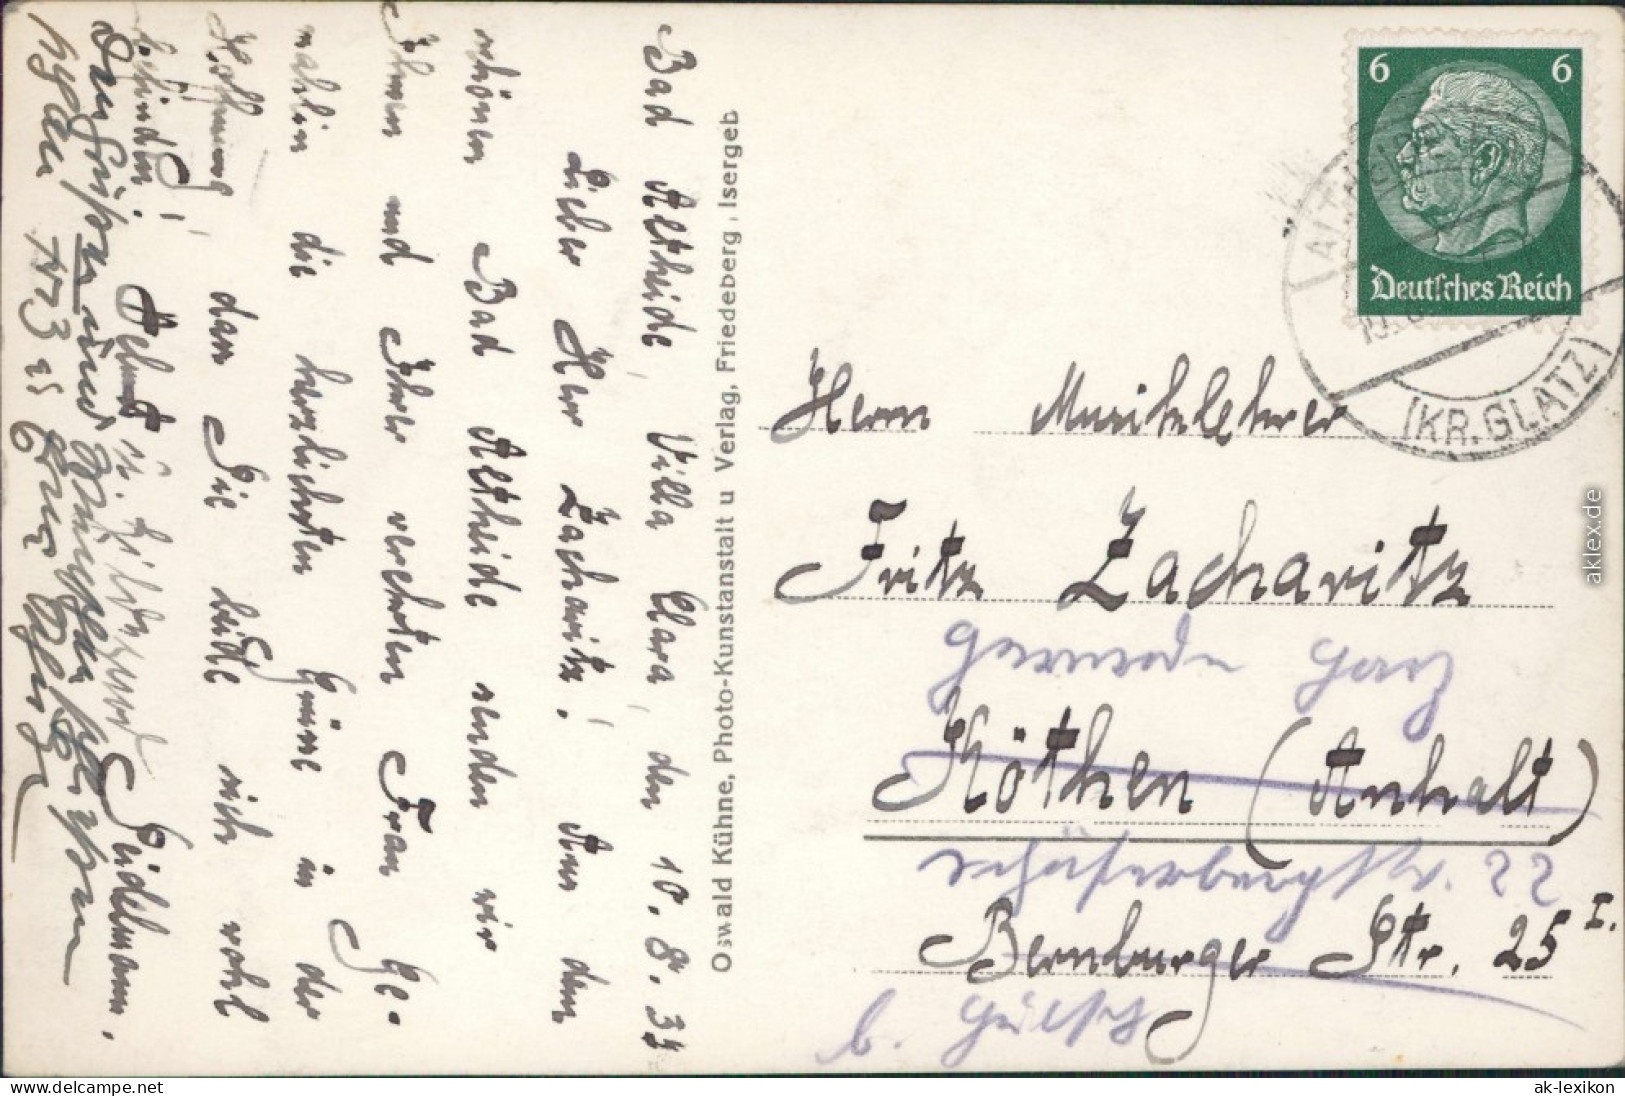 Bad Altheide, Villa Clara, den 10. 8. 34
Lieber Herr Zacharitz! Aus dem
schönen Bad Altheide senden wir
Ihnen und Ihrer verehrten Frau Ge-
mahlin die herzlichsten Grüße in der
Hoffnung, dass Sie beide sich wohl
befinden! Helmut u. Hildegard Seidelmann.
und
Oswald Kühne, Photo-Kunstanstalt u Verlag, Friedeberg, Isergeb
6 6
Deutsches Reich
ALTH
(KR. GLATZ)
Herrn Musiklehrer
Fritz Zacharitz
Gernrode Harz
Köthen (Anhalt)
22
Bernburger Str. 25 I.
b.
aklex.de
www.delcampe.net
ak-lexikon